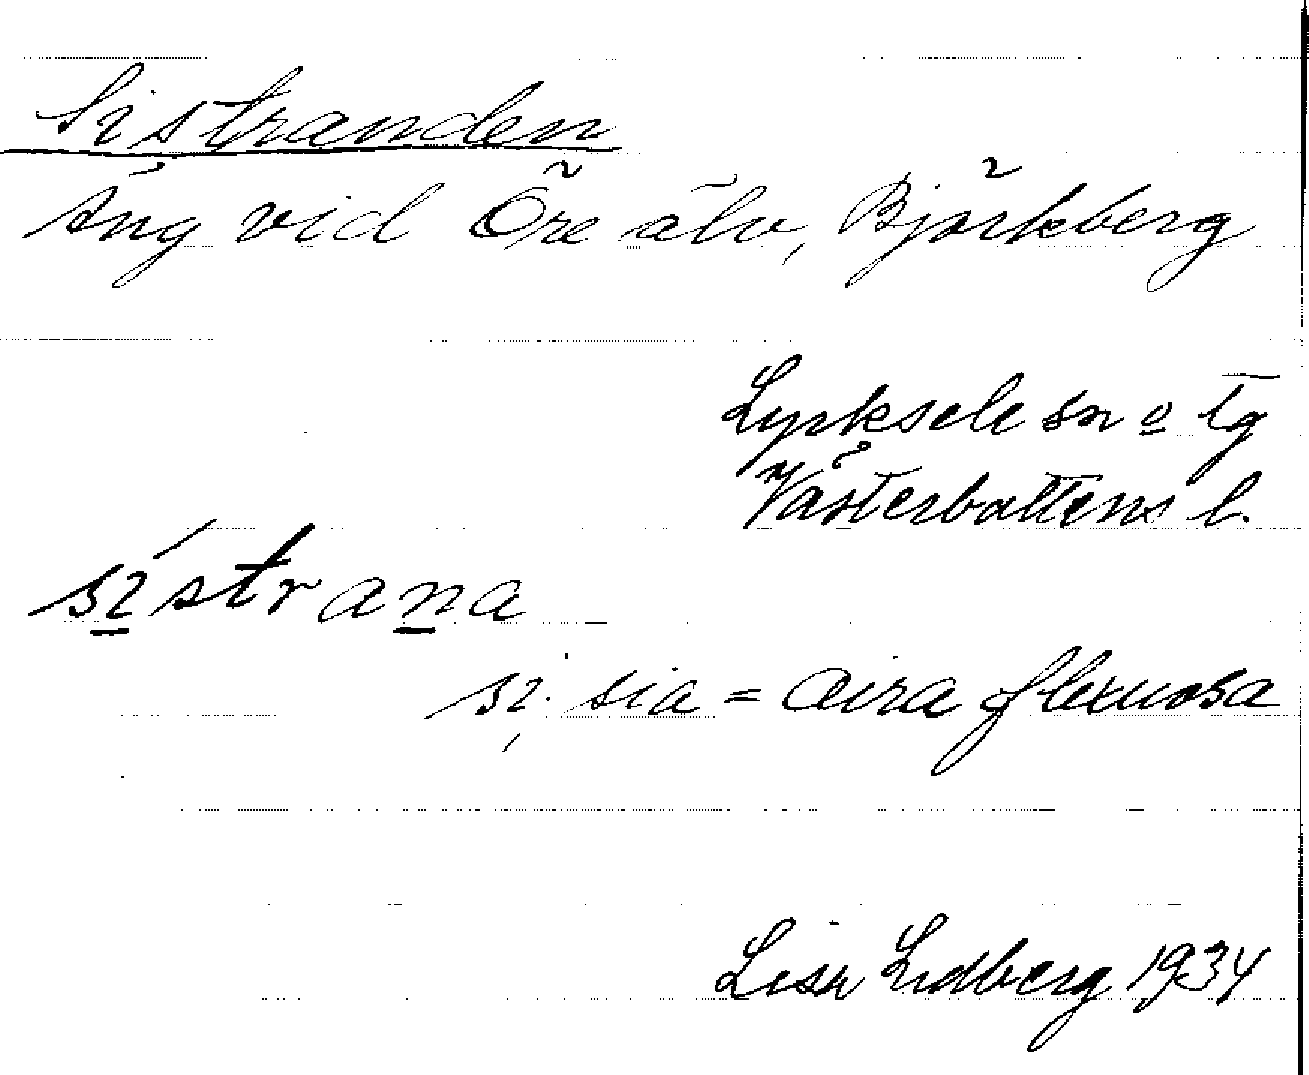 Sistranden
Äng vid Öre älv, Björkberg
Lycksele sn o tg
Västerbottens l.
sístrana
si: sia = Aira flexuosa
Lisa Lidberg 1934